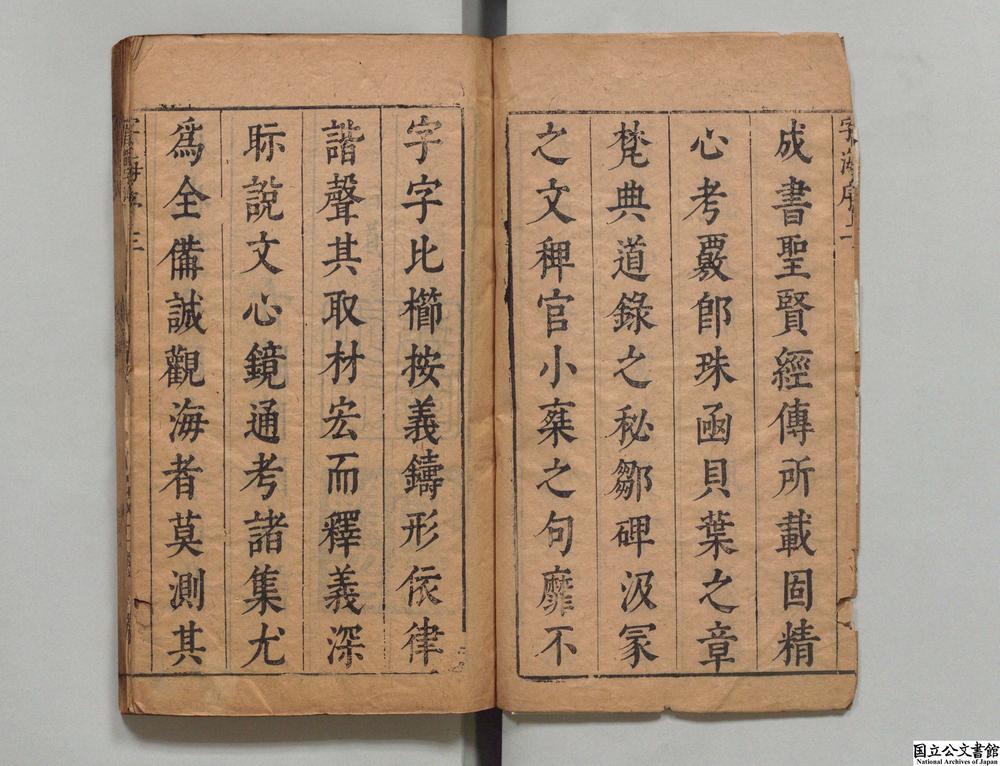 成書聖賢經傳所載固精
心考覈卽珠函貝葉之章
梵典道錄之秘鄒碑汲冢
之文稗官小乘之句靡不
字字比櫛按義鑄形依律
諧聲其取材宏而釋義深
眎說文心鏡通考諸集尤
爲全備誠觀海者莫測其
字海序
三
国立公文書館
National Archives of Japan